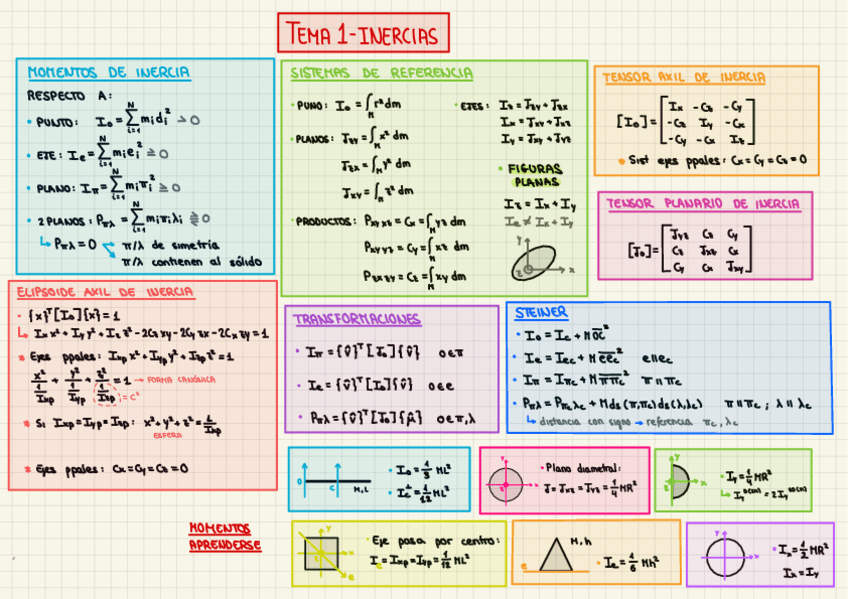 TEMA 1-INERCIAS
MOMENTOS DE INERCIA
RESPECTO A:
• PUNTO: I₀ = ∑ᵢ₌₁ᴺ mᵢdᵢ² ≥ 0
• EJE: Iₑ = ∑ᵢ₌₁ᴺ mᵢeᵢ² ≥ 0
• PLANO: I_π = ∑ᵢ₌₁ᴺ mᵢπᵢ² ≥ 0
• 2 PLANOS: P_πλ = ∑ᵢ₌₁ᴺ mᵢπᵢλᵢ ⋛ 0
↳ P_πλ = 0
π/λ de simetría
π/λ contienen al sólido
SISTEMAS DE REFERENCIA
• PUNO: I₀ = ∫_M r² dm
• PLANOS: J_zy = ∫_M x² dm
J_zx = ∫_M y² dm
J_xy = ∫_M z² dm
• PRODUCTOS: P_xy xz = Cx = ∫_M yz dm
P_xy yz = Cy = ∫_M xz dm
P_zx zy = Cz = ∫_M xy dm
• EJES: Iz = J_zy + J_zx
Ix = J_xy + J_xz
Iy = J_xy + J_yz
• FIGURAS
PLANAS
Iz = Ix + Iy
Ie ≠ Ix + Iy
y
z
x
TENSOR AXIL DE INERCIA
[I₀] = [Ix -Cz -Cy
-Cz Iy -Cx
-Cy -Cx Iz]
* Sist ejes ppales: Cx = Cy = Cz = 0
TENSOR PLANARIO DE INERCIA
[J₀] = [J_yz Cz Cy
Cz J_xz Cx
Cy Cx J_xy]
ELIPSOIDE AXIL DE INERCIA
• {x}ᵀ[I₀]{x} = 1
↳ Ix x² + Iy y² + Iz z² - 2Cz xy - 2Cy zx - 2Cx zy = 1
* Ejes ppales: Ixp x² + Iyp y² + Izp z² = 1
x²/(1/Ixp) + y²/(1/Iyp) + z²/(1/Izp) = 1 → FORMA CANÓNICA
= c²
* Si Ixp = Iyp = Izp: x² + y² + z² = 1/Ixp
ESFERA
* Ejes ppales: Cx = Cy = Cz = 0
TRANSFORMACIONES
• I_π = {v̂}ᵀ[J₀]{v̂} o∈π
• Ie = {v̂}ᵀ[I₀]{v̂} o∈e
• P_πλ = {v̂}ᵀ[J₀]{μ̂} o∈π,λ
STEINER
• I₀ = Ic + M OC²
• Ie = Iec + M eec² e∥ec
• I_π = I_πc + M ππc² π∥πc
• P_πλ = P_πcλc + M ds(π,πc) ds(λ,λc) π∥πc ; λ∥λc
↳ distancia con signo → referencia πc, λc
O
C
M, L
• I₀ = 1/3 ML²
• Ic = 1/12 ML²
Y
x
z
• Plano diametral:
J = J_xz = J_yz = 1/4 MR²
Y
x
z
• Iy = 1/4 MR²
MOMENTOS
APRENDERSE
y
x
e
• Eje pasa por centro:
I = Ixp = Iyp = 1/12 ML²
M, h
e
• Ie = 1/6 Mh²
Y
x
• Ix = 1/2 MR²
Ix = Iy